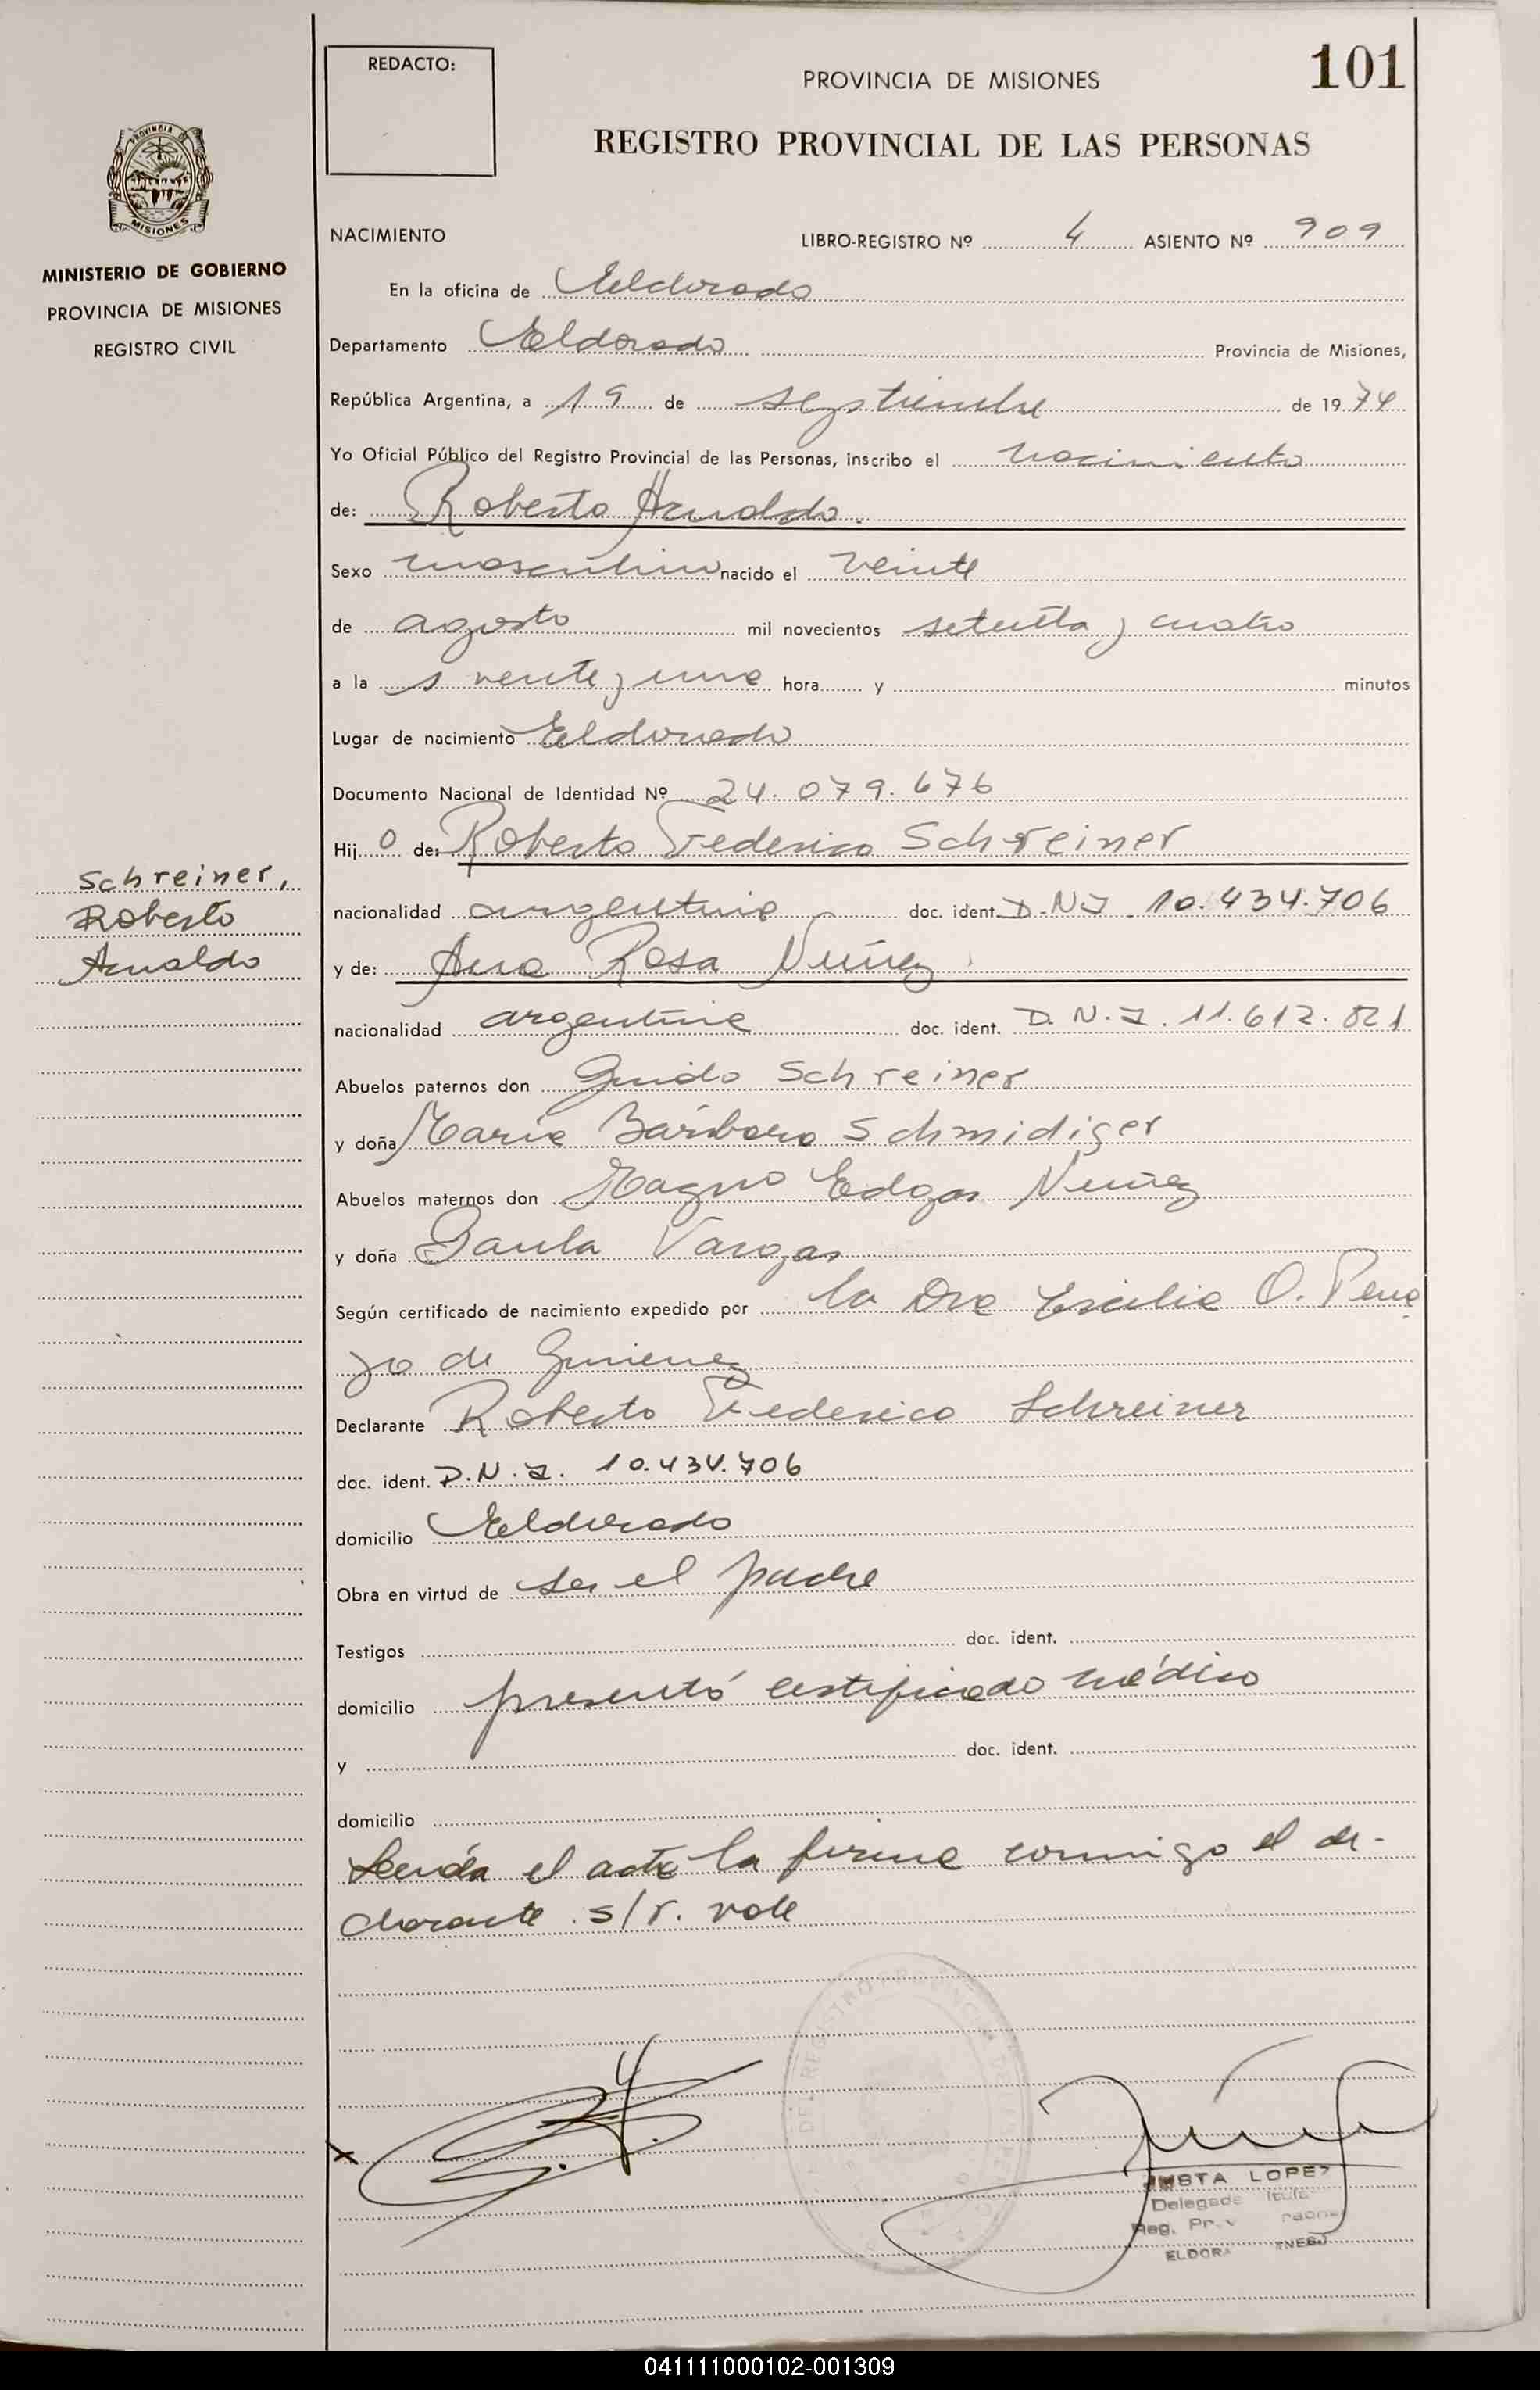 REDACTO:
PROVINCIA DE MISIONES
101
REGISTRO PROVINCIAL DE LAS PERSONAS
PROVINCIA DE
MISIONES
MINISTERIO DE GOBIERNO
PROVINCIA DE MISIONES
REGISTRO CIVIL
NACIMIENTO
LIBRO-REGISTRO Nº 4 ASIENTO Nº 909
En la oficina de Eldorado
Departamento Eldorado Provincia de Misiones,
República Argentina, a 19 de septiembre de 1974
Yo Oficial Público del Registro Provincial de las Personas, inscribo el nacimiento
de: Roberto Arnoldo.
Sexo masculino nacido el veinte
de agosto mil novecientos setenta y cuatro
a la s veinte y una hora y minutos
Lugar de nacimiento Eldorado
Documento Nacional de Identidad Nº 24.079.676
Hij o de: Roberto Federico Schreiner
Schreiner,
Roberto
Arnoldo
nacionalidad argentina doc. ident. D.N.I. 10.434.706
y de: Ana Rosa Nuñez
nacionalidad argentina doc. ident. D.N.I. 11.612.821
Abuelos paternos don Guido Schreiner
y doña María Bárbara Schmidiger
Abuelos maternos don Magno Edgar Nuñez
y doña Paula Vargas
Según certificado de nacimiento expedido por la Dra O. Pena
yo de Gimenez
Declarante Roberto Federico Schreiner
doc. ident. D.N.I. 10.434.706
domicilio Eldorado
Obra en virtud de ser el padre
Testigos doc. ident.
domicilio presentó certificado médico
y doc. ident.
domicilio
Leída el acta la firma conmigo el de-
clarante. s/r. vale
LOPEZ
Reg.